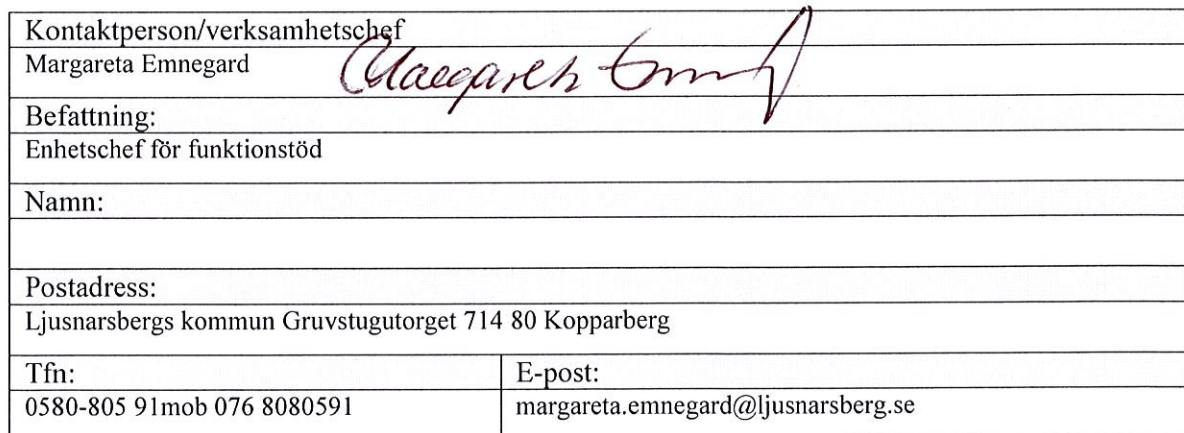 Kontaktperson/verksamhetschef
Margareta Emnegard
Margareta
Befattning:
Enhetschef för funktionstöd
Namn:
Postadress:
Ljusnarsbergs kommun Gruvstugutorget 714 80 Kopparberg
Tfn: E-post:
0580-805 91mob 076 8080591 margareta.emnegard@ljusnarsberg.se